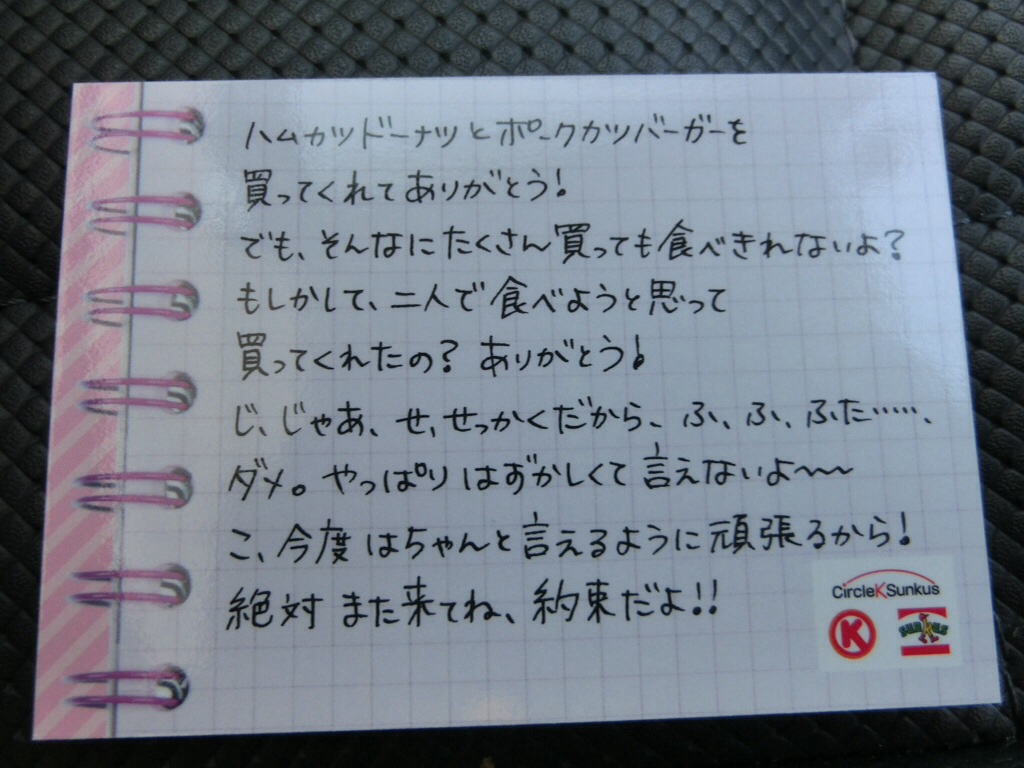 ハムカツドーナツとポークカツバーガーを
買ってくれてありがとう！
でも、そんなにたくさん買っても食べきれないよ？
もしかして、二人で食べようと思って
買ってくれたの？ ありがとう！
じ、じゃあ、せ、せっかくだから、ふ、ふ、ふた……、
ダメ。やっぱりはずかしくて言えないよ〜〜
こ、今度はちゃんと言えるように頑張るから！
絶対また来てね、約束だよ！！
CircleKSunkus
K
sunkus